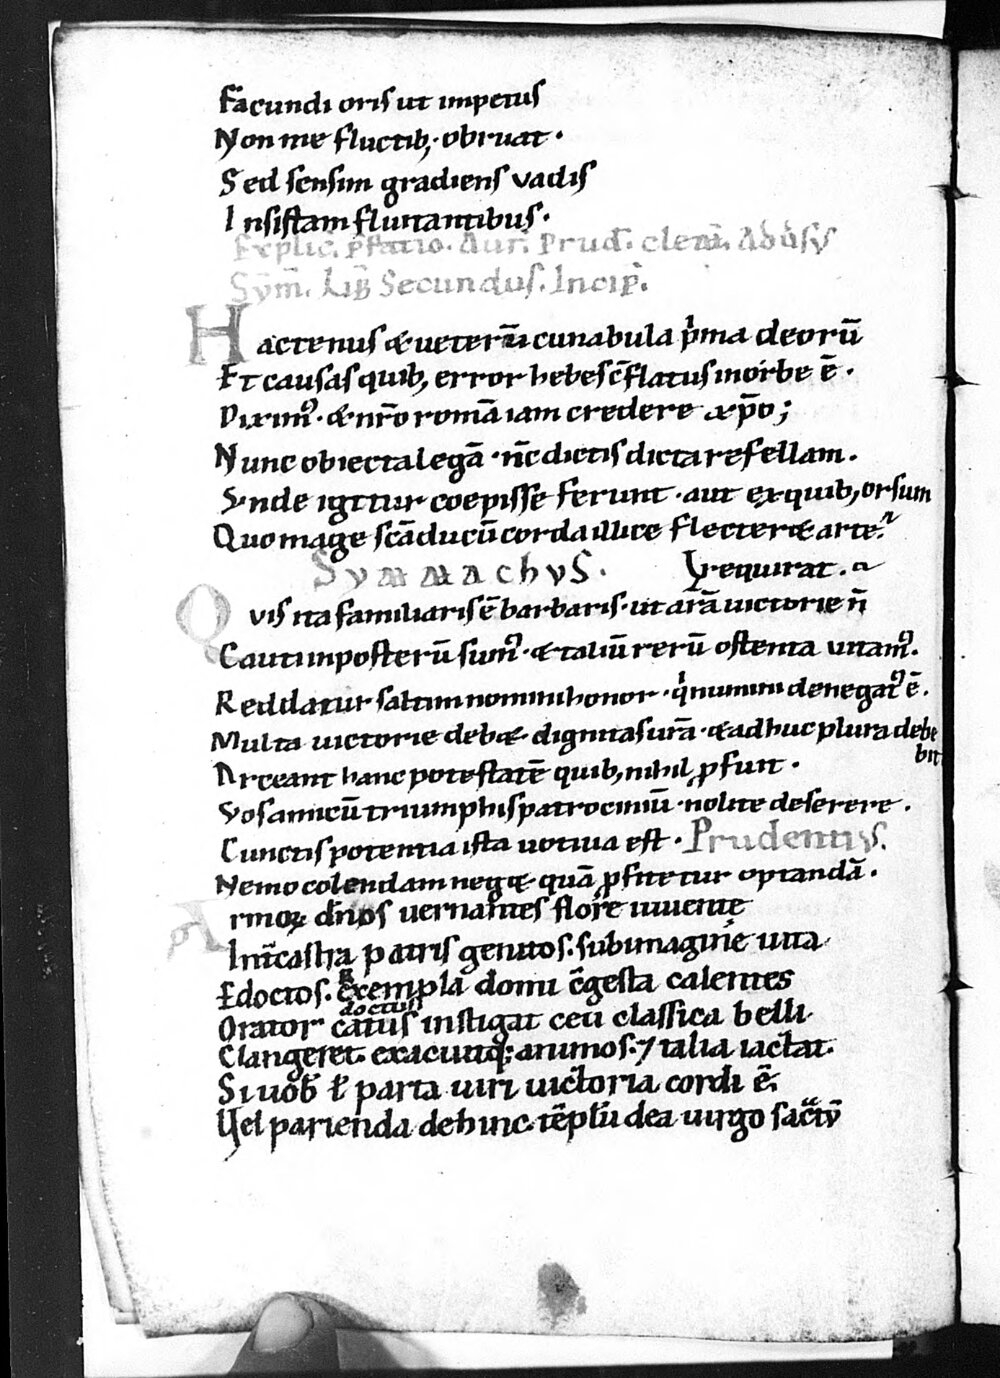 Facundi oris ut impetus
Non me fluctib; obruat.
Sed sensim gradiens vadis
Insistam fluitantibus.
Explic̄. p̄fatio. Aur̄. Prud̄. clem̄. Adūsv
Sȳm̄. Lib̄ Secundus. Incip̄.
Hactenus & ueterū cunabula p̍ma deorū
Et causas quib; error hebes c̄flatus in orbe ē.
Diximꝰ. & nr̄o romā iam credere xp̄o;
Nunc obiecta legā. nc̄ dictis dicta refellam.
Vnde igitur coepisse ferunt. aut ex quib; orsum
Quo mage scā ducū corda illice flecter& arte.
Symmachvs. requirat.
Qvis ita familiaris ē barbaris. ut arā uictorie n̄
Cauti in posterū sumꝰ. & taliū rerū ostenta uitamꝰ.
Reddatur saltim nomini honor. q̍ numini denegatꝰ ē.
Multa uictorie deb&. dignitas ur̄a. & adhuc plura debe
bit
Arceant hanc potestatē quib; nihil ꝓfuit.
Vos amicū triumphis patrociniū nolite deserere.
Cunctis potentia ista uotiua est. Prudentivs.
Nemo colendam neg& quā ꝓfitetur optandā.
Armoꝝ dn̄os uernantes flore iuuentę
Int̄ castra patris genitos. sub imagine uita
Edoctos. exempla domi c̄gesta calentes
doctus
Orator catus instigat ceu classica belli.
Clangeret. exacuitq; animos. ⁊ talia iactat.
Si uob̄ ł parta uiri uictoria cordi ē.
Vel parienda dehinc. tēplū dea uirgo sactv̄